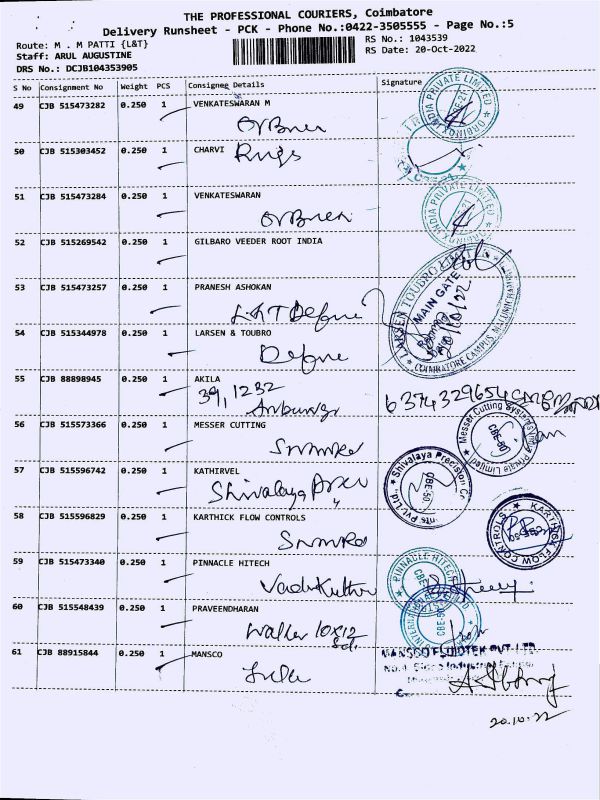 THE PROFESSIONAL COURIERS, Coimbatore
Delivery Runsheet - PCK - Phone No.:0422-3505555 - Page No.:5
Route: M . M PATTI {L&T}
RS No.: 1043539
Staff: ARUL AUGUSTINE
RS Date: 20-Oct-2022
DRS No.: DCJB104353905
S No Consignment No Weight PCS Consignee Details Signature
49 CJB 515473282 0.250 1 VENKATESWARAN M
50 CJB 515303452 0.250 1 CHARVI
Rings
51 CJB 515473284 0.250 1 VENKATESWARAN
52 CJB 515269542 0.250 1 GILBARO VEEDER ROOT INDIA
53 CJB 515473257 0.250 1 PRANESH ASHOKAN
LARSEN TOUBRO LIMITED
MAIN GATE
20/10/22
COIMBATORE CAMPUS, MALUMICHAMPATTI
54 CJB 515344978 0.250 1 LARSEN & TOUBRO
55 CJB 88898945 0.250 1 AKILA
39, 1232
6374329654
56 CJB 515573366 0.250 1 MESSER CUTTING
Messer Cutting Systems India Private Limited
CBE-50
57 CJB 515596742 0.250 1 KATHIRVEL
Shivalaya
Shivalaya Precision
CBE-50
58 CJB 515596829 0.250 1 KARTHICK FLOW CONTROLS
KARTHICK FLOW CONTROLS
59 CJB 515473340 0.250 1 PINNACLE HITECH
PINNACLE HITECH
60 CJB 515548439 0.250 1 PRAVEENDHARAN
Walker 10x12
INTERNATIONAL
61 CJB 88915844 0.250 1 MANSCO
MANSCO FLUIDTEK PVT LTD
20.10.22